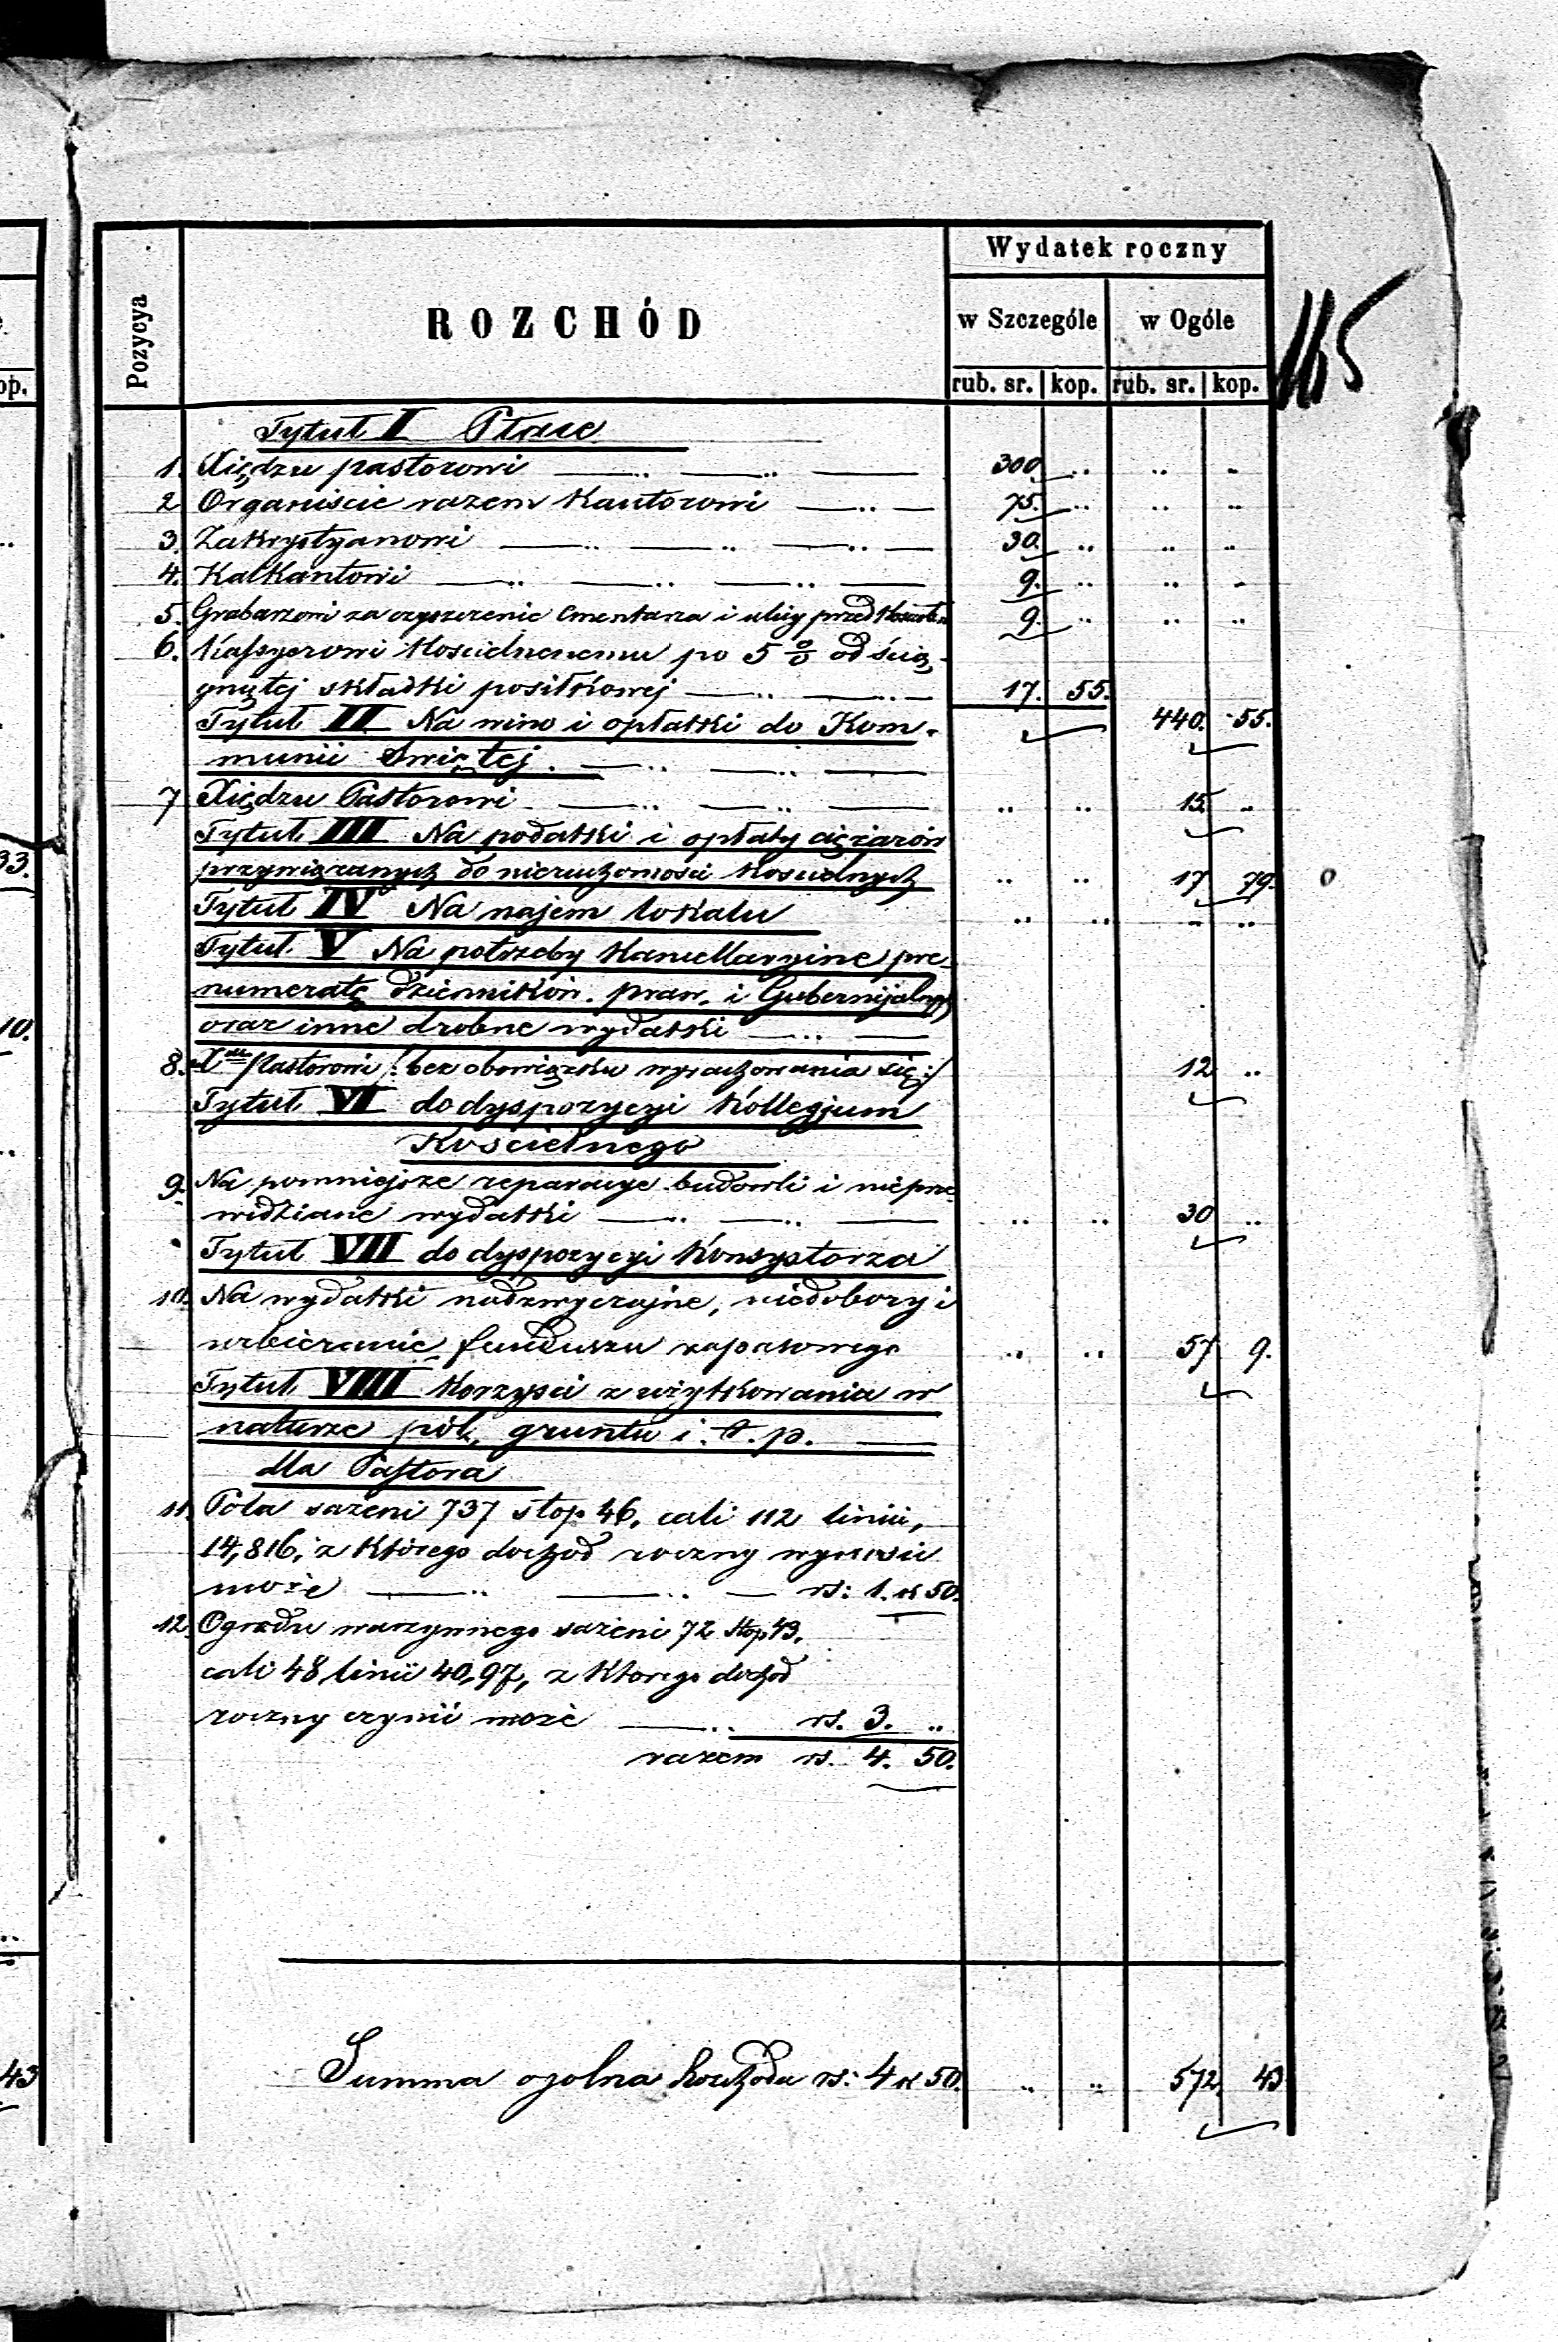 165
Wydatek roczny
Pozycya
ROZCHÓD
w Szczególe w Ogóle
rub. sr. kop. rub. sr. kop.
Tytuł I Płace
1. Xiędzu pastorowi 300 .. .. ..
2 Organiscie razem Kantorowi 75. .. .. ..
3. Zakrystyanowi 30. .. .. ..
4. Kalkantowi 9. .. .. ..
5. Grabarzowi za czyszczenie Cmentarza i ulicy przed 9. .. .. ..
6. Kassyerowi Koscielnenemu po 5 % od ścią-
gnętej składki posiłkowej 17. 55.
Tytuł II Na wino i opłatki do Kom- 440. 55.
munii Swiętej.
7 Xiędzu Pastorowi .. .. 15. ..
Tytuł III Na podatki i opłaty ciężarów
przywiązanych do nieruchomosci Koscielnych .. .. 17 79.
Tytuł IV Na najem lokalu .. .. .. ..
Tytuł V Na potrzeby Kancellaryine pre-
numeratę dzienników. praw. i Gubernijalnych
oraz inne drobne wydatki
8. X Pastorowi /: bez obowiązku wyrachowania się :/ 12 ..
Tytuł VI do dyspozycyi Kollegjum
Koscielnego
9. Na pomniejsze reparacye budowli i nieprze-
widziane wydatki .. .. 30 ..
Tytuł VII do dyspozycyi Konsystorza
10. Na wydatki nadzwyczajne, niedobory i
uzbieranie funduszu zapasowego .. .. 57 9.
Tytuł VIII Korzysci z użytkowania w
naturze pól, gruntu i. t. p.
dla Pastora
11. Pola sażeni 737 stop 46, cali 112 linii,
14,816, z którego dochod roczny wynosić
może rs: 1. k 50.
12. Ogrodu warzywnego sażeni 72 stop 43.
cali 48 linii 40,97, z którego dochod
roczny czynić może rs. 3. ..
razem rs. 4. 50.
Summa ogolna Rozchodu rs: 4 k 50. .. .. 572 43